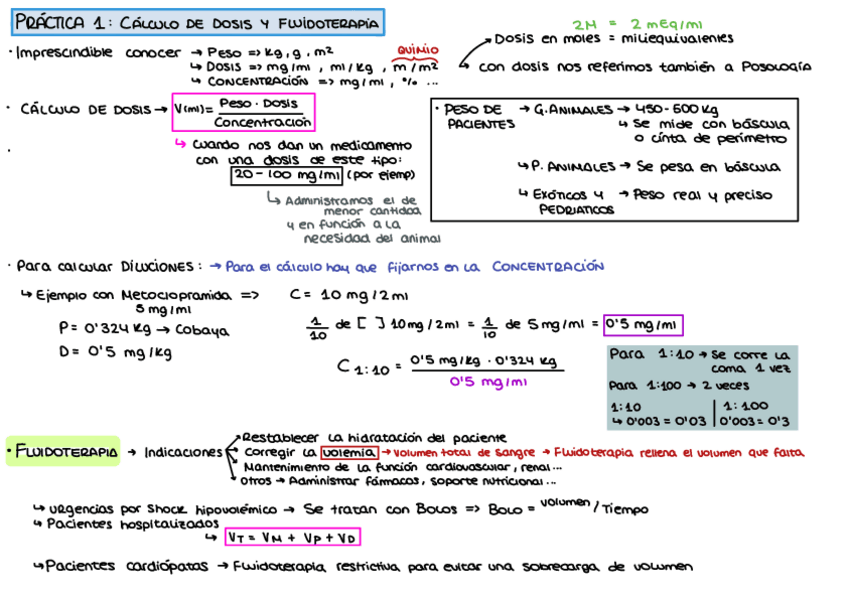 PRÁCTICA 1: CÁLCULO DE DOSIS Y FLUIDOTERAPIA
2M = 2 mEq/ml
Dosis en moles = miliequivalentes
· Imprescindible conocer → Peso => kg, g, m²
QUIMIO
↳ DOSIS => mg/ml, ml/kg, m/m²
↳ con dosis nos referimos también a Posología
↳ CONCENTRACIÓN => mg/ml, % ...
· CÁLCULO DE DOSIS → V(ml) = Peso · Dosis / Concentración
↳ Cuando nos dan un medicamento
con una dosis de este tipo:
20 - 100 mg/ml (por ejemp)
↳ Administramos el de
menor cantidad
y en función a la
necesidad del animal
· PESO DE PACIENTES → G. ANIMALES → 450-500 kg
↳ Se mide con báscula
o cinta de perímetro
↳ P. ANIMALES → Se pesa en báscula
↳ EXÓTICOS Y PEDRIATICOS → Peso real y preciso
· Para calcular DILUCIONES: → Para el cálculo hay que fijarnos en la CONCENTRACIÓN
↳ Ejemplo con Metoclopramida => C = 10 mg/2ml
5 mg/ml
P = 0'324 kg → Cobaya
D = 0'5 mg/kg
1/10 de [ ] 10mg/2ml = 1/10 de 5mg/ml = 0'5 mg/ml
C 1:10 = 0'5 mg/kg · 0'324 kg / 0'5 mg/ml
Para 1:10 → Se corre la
coma 1 vez
Para 1:100 → 2 veces
1:10 | 1:100
↳ 0'003 = 0'03 | 0'003 = 0'3
· FLUIDOTERAPIA → Indicaciones
Restablecer la hidratación del paciente
Corregir la volemia → Volumen total de sangre → Fluidoterapia rellena el volumen que falta
Mantenimiento de la función cardiovascular, renal...
Otros → Administrar fármacos, soporte nutricional...
↳ Urgencias por Shock hipovolémico → Se tratan con Bolos => Bolo = volumen / Tiempo
↳ Pacientes hospitalizados
↳ VT = VM + VP + VD
↳ Pacientes cardiópatas → Fluidoterapia restrictiva para evitar una sobrecarga de volumen